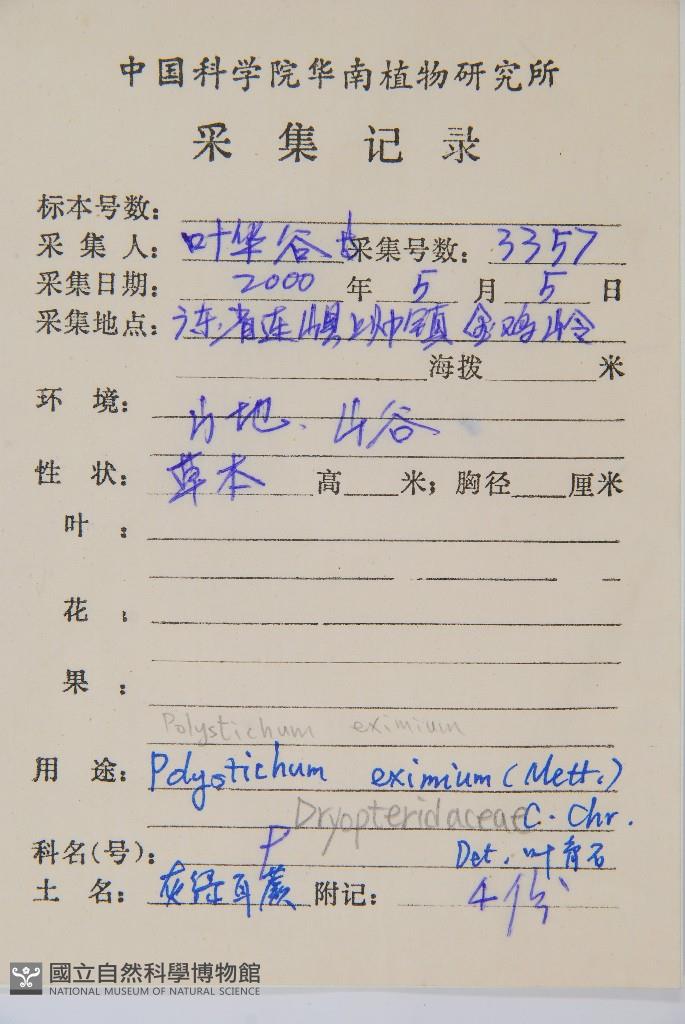 中国科学院华南植物研究所
采集记录
标本号数：
采集人：叶华谷 采集号数：3357
采集日期：2000年5月5日
采集地点：广东省连山县上帅镇 金鸡岭
海拨 米
环境：山地、山谷
性状：草本 高 米；胸径 厘米
叶：
花：
果：
Polystichum eximium
用途：Polystichum eximium (Mett.)
Dryopteridaceae C. Chr.
科名(号)：P Det. 叶育石
土名：灰绿耳蕨 附记：4份
國立自然科學博物館
NATIONAL MUSEUM OF NATURAL SCIENCE